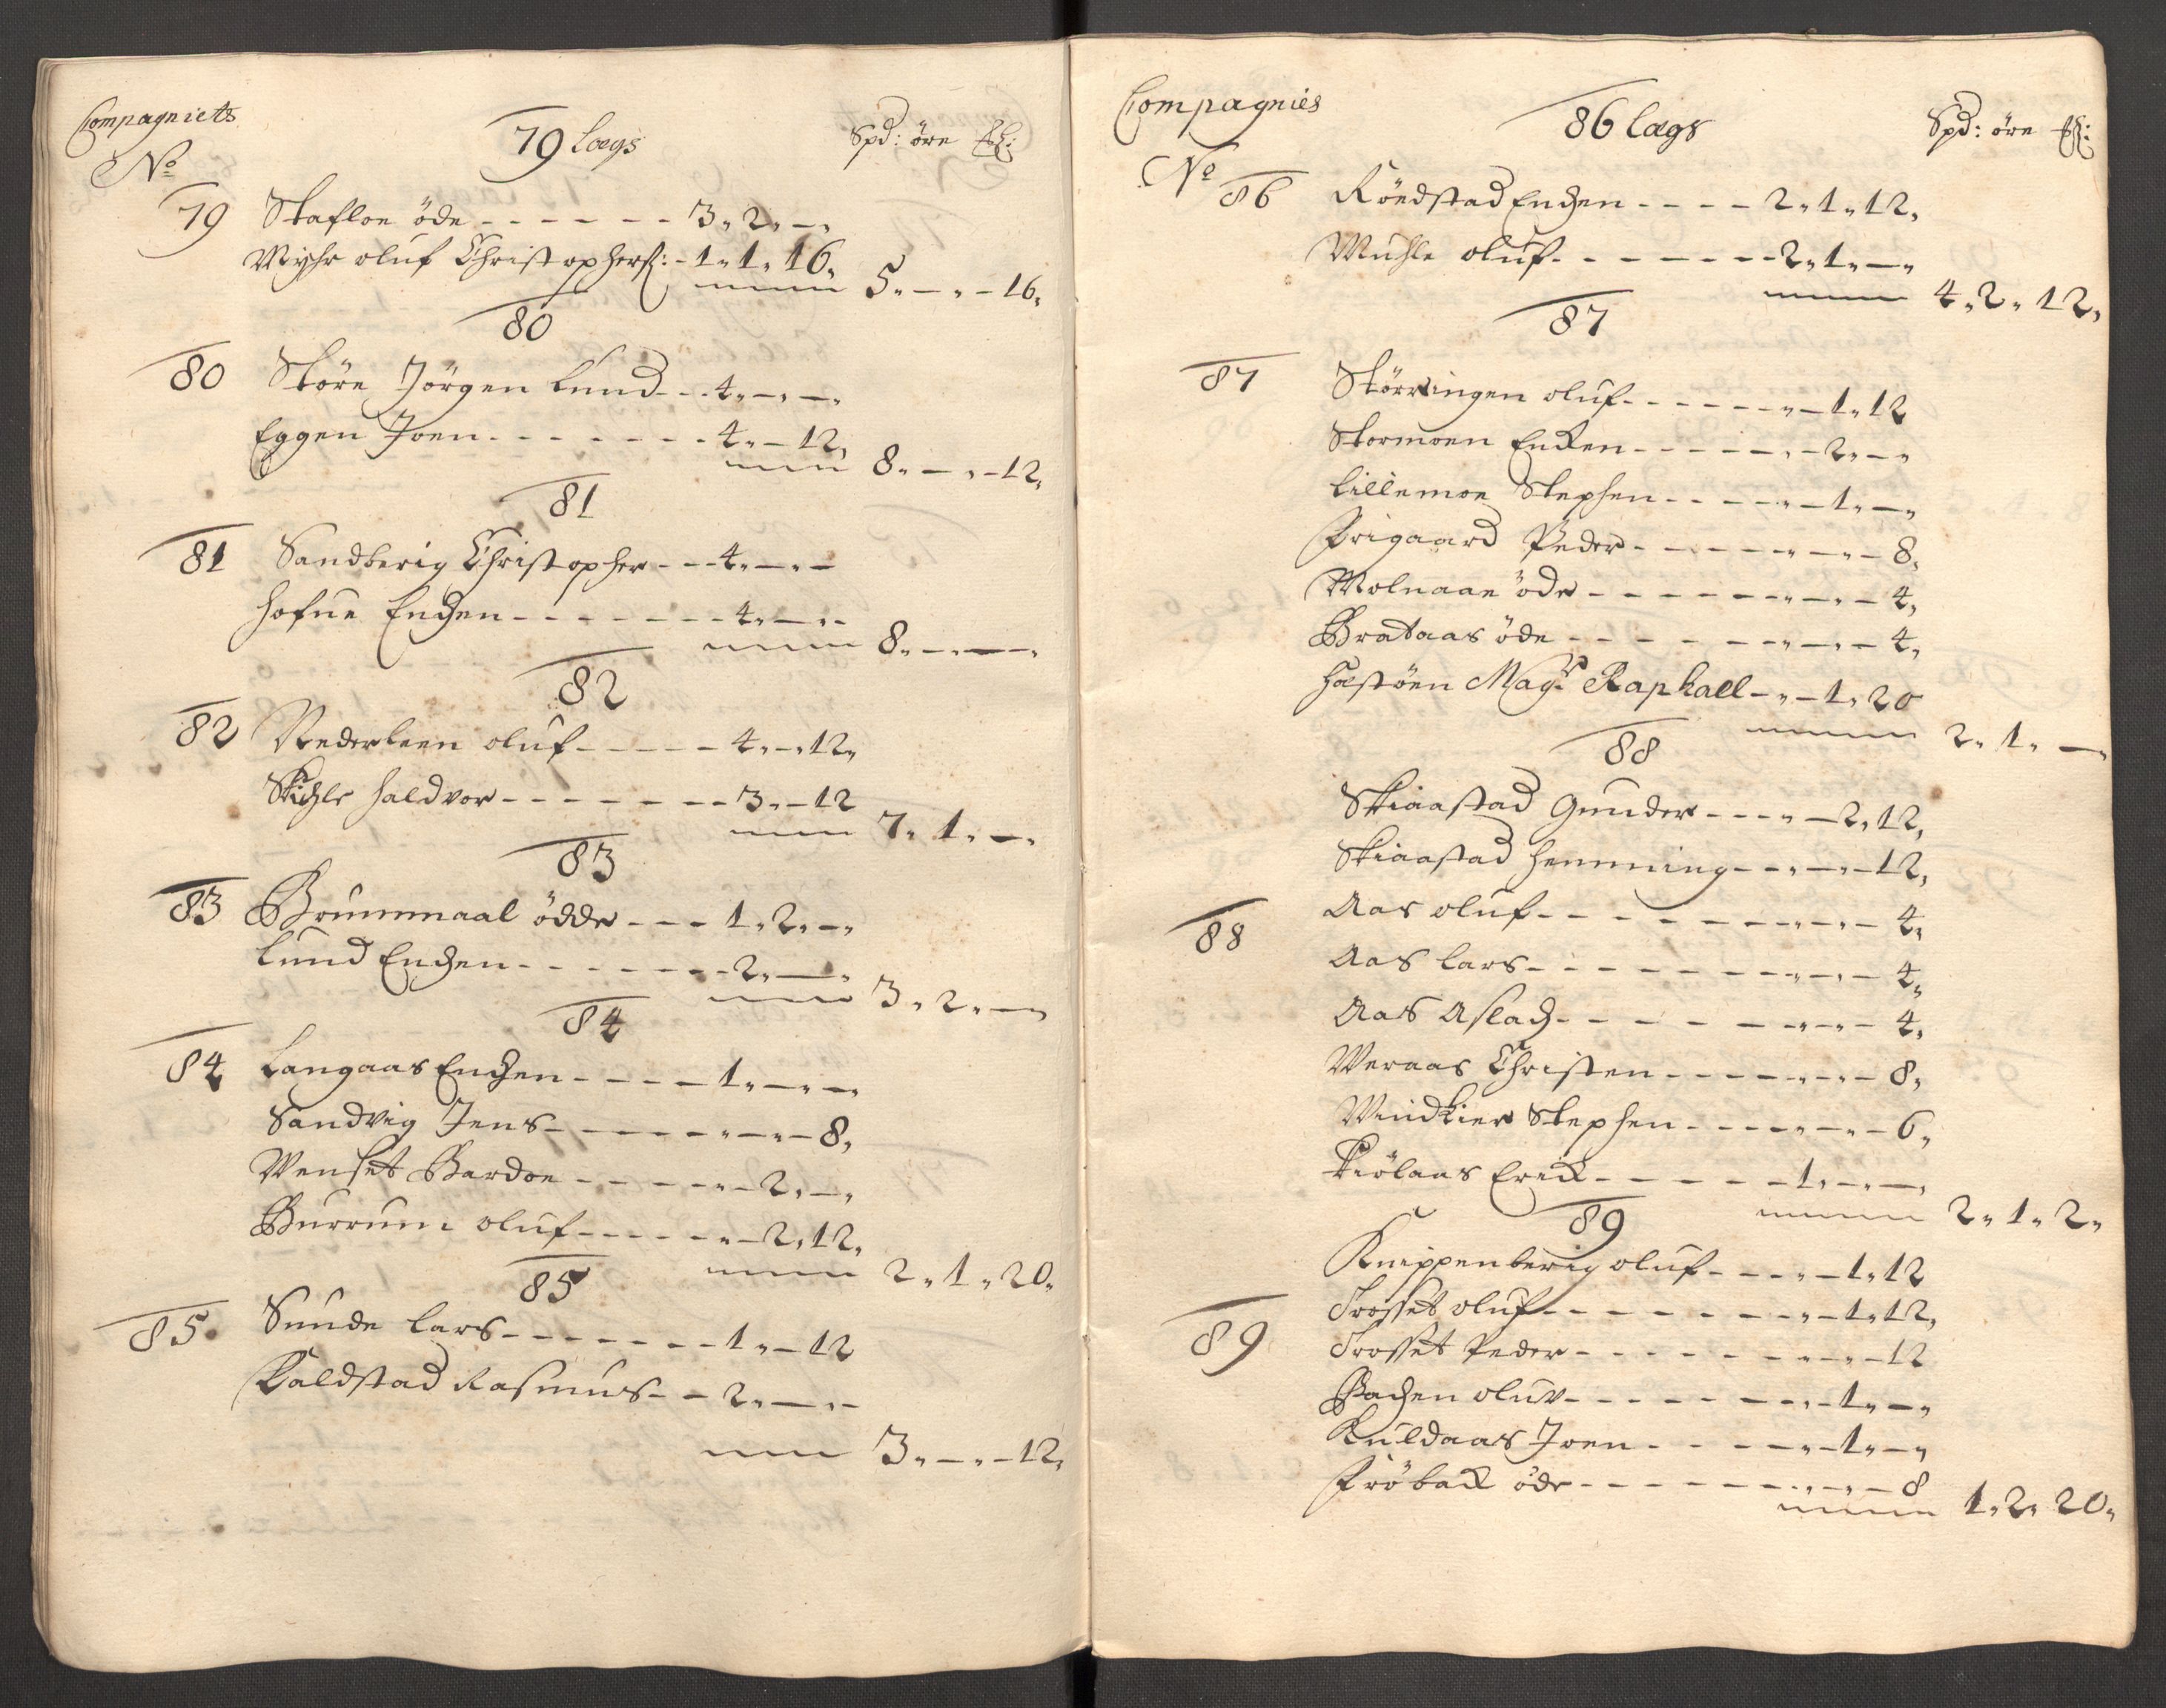 Compagniets
No
79 Lægs
Spd: öre
79 Stafloe öde - - - - - - 3 " 2 " — "
Myhr oluf Christophers: - 1 " 1 " 16 "
5 " — " — 16 "
80
80 Störe Jörgen Lund - - - 4 " — " — "
Eggen Joen - - - - - - - 4 " — 12 "
8 " — " — 12 "
81
81 Sandberig Christopher - - - 4 " — " —
Hofne Enchen - - - - - - - 4 " — " —
8 " — " — "
82
82 Nederleen oluf - - - - - 4 " — " 12 "
Haldvor - - - - - - - 3 " — 12
7 " 1 " — "
83
83 Brummaal ödde - - - 1 " 2 " — "
Lund Enchen - - - - - - - 2 " — "
3 " 2 " — "
84
84 Langaas Enchen - - - - 1 " — " — "
Sandvig Jens - - - - - - - " — " — 8 "
Wenset Bardoe - - - - - " — 2 " — "
Burrum oluf - - - - - " — 2 " 12 "
2 " 1 " 20 "
85
85 Sunde Lars - - - - - - - 1 " — 12
Kaldstad Rasmus - - 2 " — " —
3 " — " — 12 "
Compagnies
No
86 Lægs
Spd: öre
86 Röedstad Enchen - - - - 2 " 1 " 12 "
Muhle oluf - - - - - - - 2 " 1 " — "
4 " 2 " 12 "
87
87 Störringen oluf - - - - - - " — 1 " 12
Stormoen Encken - - - - - " — 2 " — "
Lillemoe Stephen - - - - " — 1 " — "
Frigaard Peder - - - - - " — " — 8 "
Molnaae öde - - - - - - - " — " — 4 "
Brataas öde - - - - - - " — " — 4 "
Hastöen Magr Raphaell - " — 1 " 20
2 " 1 " — "
88
Skiaastad Gunder - - - - " — 2 " 12 "
Skiaastad Hemming - - - " — " — 12 "
Aas oluf - - - - - - - - " — " — 4 "
88 Aas Lars - - - - - - - - " — " — 4 "
Aas Aslach - - - - - - - " — " — 4 "
Weraas Christen - - - - - " — " — 8 "
Windkier Stephen - - - - " — " — 6 "
Kiölaas Erick - - - - - - 1 " — " — "
2 " 1 " 2 "
89
Knippenberig oluf - - - - " — 1 " 12
Trosset oluf - - - - - - - " — 1 " 12 "
89 Trosset Peder - - - - - - " — " — 12
Bachen oluv - - - - - - - " — 1 " — "
Kuldaas Joen - - - - - " — 1 " — "
Fröback öde - - - - - - - " — " — 8
1 " 2 " 20 "